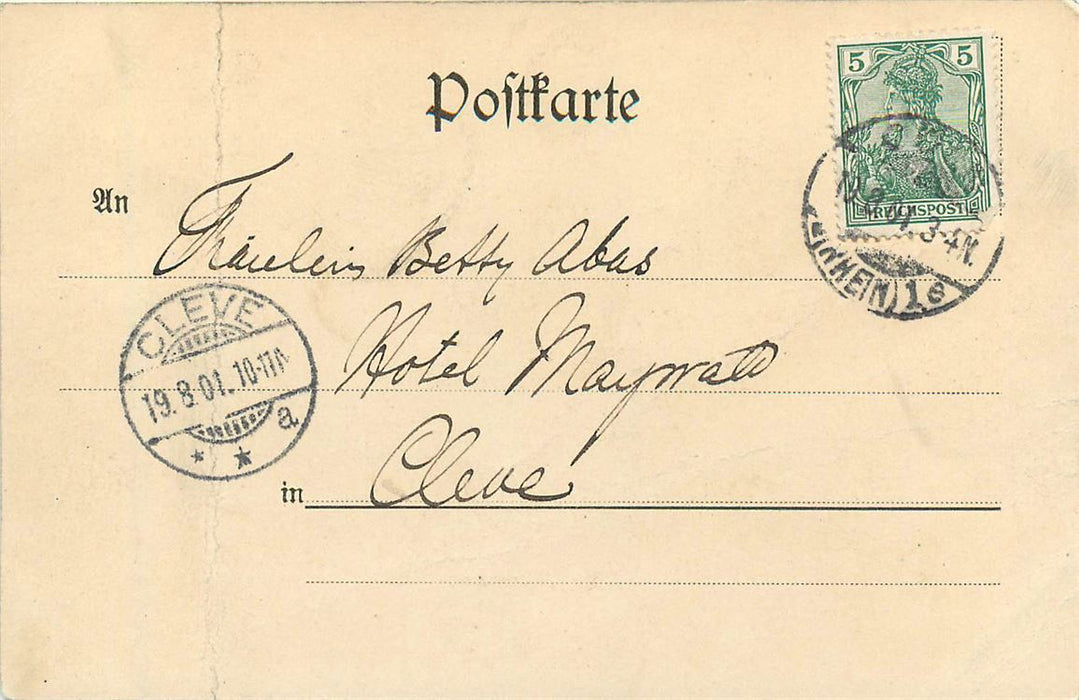 Postkarte
5 5
REICHSPOST
(RHEIN) 1 e
An Fräulein Betty Abas
CLEVE
19.8.01. 10-11
a
* *
Hotel Maywald
in Cleve